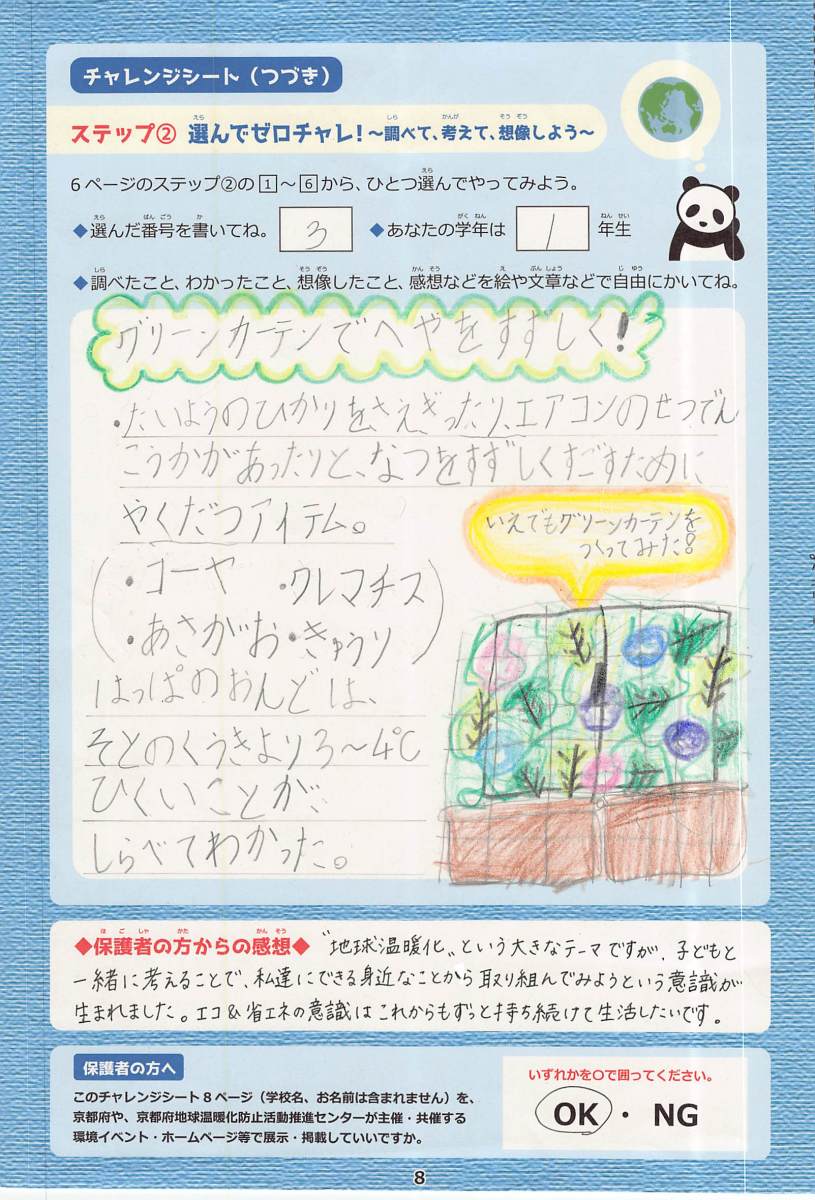 チャレンジシート（つづき）
ステップ② 選んでゼロチャレ！～調べて、考えて、想像しよう～
6ページのステップ②の1～6から、ひとつ選んでやってみよう。
◆選んだ番号を書いてね。 3 ◆あなたの学年は 1 年生
◆調べたこと、わかったこと、想像したこと、感想などを絵や文章などで自由にかいてね。
グリーンカーテンでへやをすずしく！
・たいようのひかりを、さえぎったり、エアコンのせつでん
こうかがあったりと、なつをすずしくすごすために
やくだつアイテム。
いえでもグリーンカーテンを
つくってみた！
（・ゴーヤ ・クレマチス
・あさがお・きゅうり）
はっぱのおんどは、
そとのくうきより3～4℃
ひくいことが
しらべてわかった。
◆保護者の方からの感想◆ "地球温暖化"という大きなテーマですが、子どもと
一緒に考えることで、私達にできる身近なことから取り組んでみようという意識が
生まれました。エコ&省エネの意識はこれからもずっと持ち続けて生活したいです。
保護者の方へ
このチャレンジシート8ページ（学校名、お名前は含まれません）を、
京都府や、京都府地球温暖化防止活動推進センターが主催・共催する
環境イベント・ホームページ等で展示・掲載していいですか。
いずれかを○で囲ってください。
OK ・ NG
8